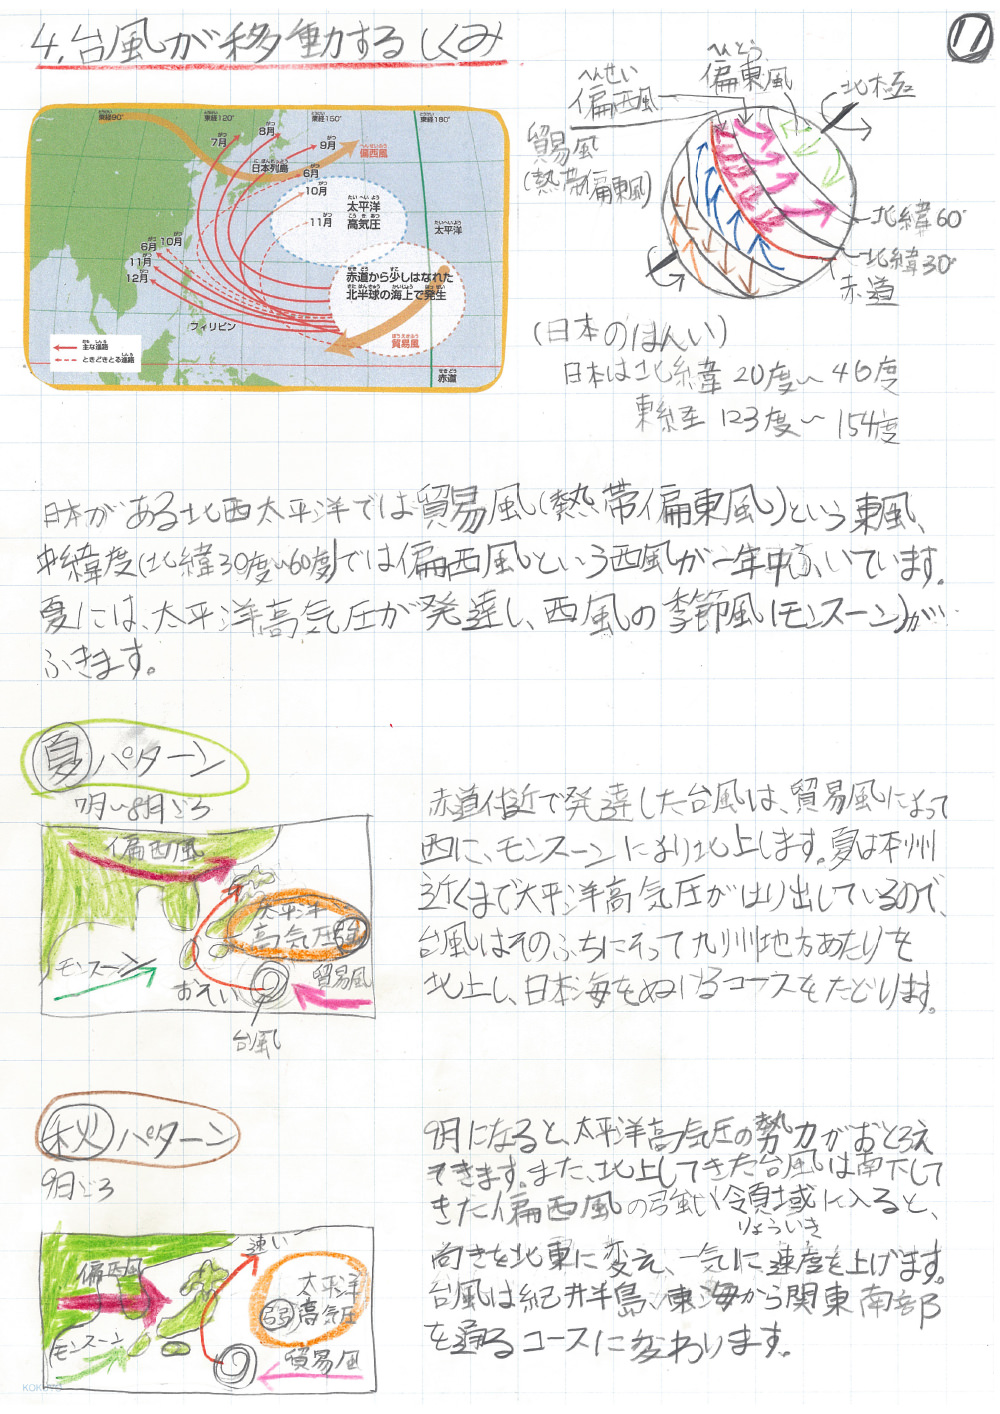 4.台風が移動するしくみ
11
とうけい
東経90°
とうけい
東経120°
とうけい
東経150°
とうけい
東経180°
がつ
7月
がつ
8月
がつ
9月
へんせいふう
偏西風
にほんれっとう
日本列島
がつ
6月
がつ
10月
がつ
11月
たいへいよう
太平洋
こうきあつ
高気圧
たいへいよう
太平洋
がつ
6月
がつ
10月
がつ
11月
がつ
12月
せきどう すこ
赤道から少しはなれた
きたはんきゅう かいじょう はっせい
北半球の海上で発生
フィリピン
ぼうえきふう
貿易風
おも しんろ
主な進路
しんろ
ときどきとる進路
せきどう
赤道
へんせい
偏西風
へんとう
偏東風
北極
貿易風
(熱帯偏東風)
北緯60°
北緯30°
赤道
(日本のはんい)
日本は北緯20度〜46度
東経123度〜154度
日本がある北西太平洋では貿易風(熱帯偏東風)という東風、
中緯度(北緯30度〜60度)では偏西風という西風が一年中ふいています。
夏には、太平洋高気圧が発達し、西風の季節風(モンスーン)が
ふきます。
夏パターン
7月〜8月ごろ
偏西風
太平洋
高気圧強
モンスーン
おそい
貿易風
台風
赤道付近で発達した台風は、貿易風によって
西に、モンスーンにより北上します。夏は本州
近くまで太平洋高気圧がはり出しているので、
台風はそのふちにそって九州地方あたりを
北上し、日本海をぬけるコースをたどります。
秋パターン
9月ごろ
偏西風
速い
太平洋
弱高気圧
モンスーン
貿易風
9月になると、太平洋高気圧の勢力がおとろえ
てきます。また、北上してきた台風は南下して
きた偏西風の強い領域に入ると、
りょういき
向きを北東に変え、一気に速度を上げます。
台風は紀井半島、東海から関東南部
を通るコースに変わります。
KOKUYO